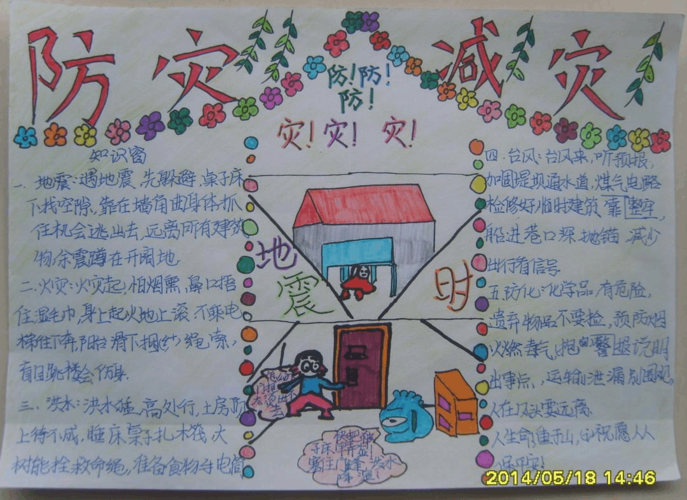 防灾 减灾
防!防!
防!
灾!灾!灾!
知识窗
一、地震:遇地震,先躲避,桌子床
下找空隙,靠在墙角曲身体,抓
住机会逃出去,远离所有建筑
物,余震蹲在开阔地.
二.火灾:火灾起,怕烟熏,鼻口捂
住湿毛巾,身上起火地上滚,不乘电
梯往下奔,阳台滑下捆绳索,
盲目跳楼会伤身.
三、洪水:洪水猛,高处行,土房
上待不成,床桌子扎木筏,大
树能拴救命绳,准备食物手电筒
地震时
四.台风:台风来,听预报,
加固堤坝通水道,煤气电路
检修好,临时建筑 整牢,
船进港口深地锚,减少
出行看信号
五.防化:化学品,有危险,
遗弃物品不要捡,预防烟
火燃毒气,报警说明
出事点,运输泄漏别围观,
人在 要远离
人生命重 ,祝愿人人
保平安!
2014/05/18 14:46